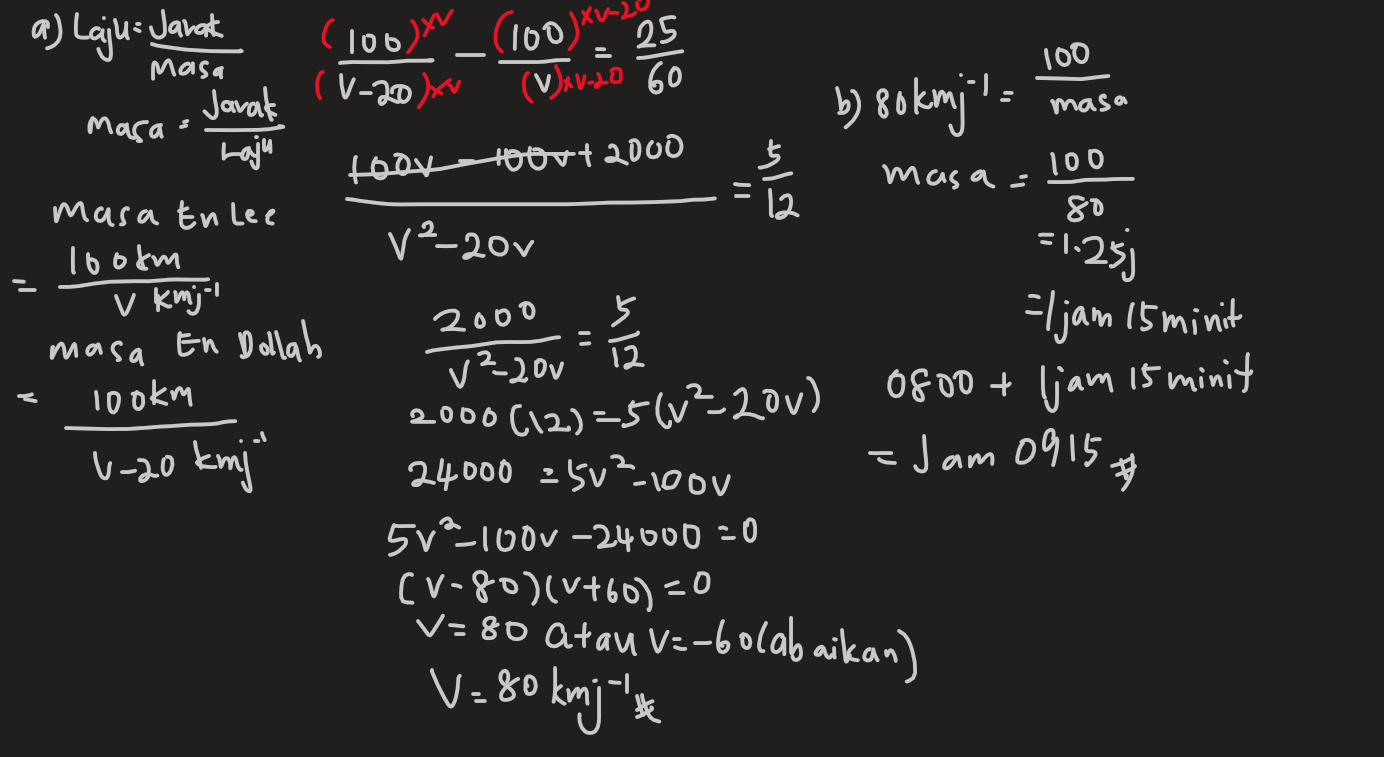 a) Laju = Jarak
Masa
Masa = Jarak
Laju
Masa En Lee
= 100km
V kmj⁻¹
Masa En Dollah
= 100km
V-20 kmj⁻¹
(100)×v - (100)×v-20 = 25
(V-20)×v (V)×v-20 60
100v - 100v + 2000 = 5
V²-20v 12
2000 = 5
V²-20v 12
2000(12) = 5(v²-20v)
24000 = 5v²-100v
5v²-100v-24000 = 0
(v-80)(v+60) = 0
V = 80 atau V = -60(abaikan)
V = 80 kmj⁻¹
b) 80kmj⁻¹ = 100
masa
masa = 100
80
= 1.25j
= 1jam 15minit
0800 + 1jam 15minit
= Jam 0915